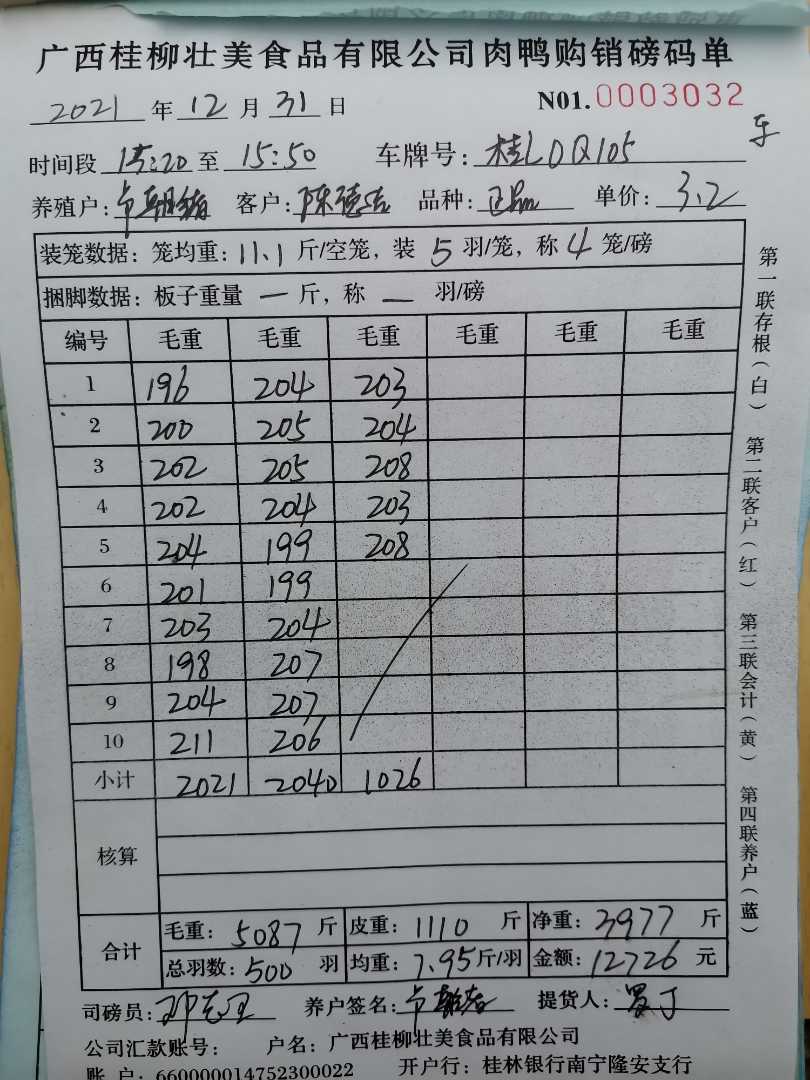 广西桂柳壮美食品有限公司肉鸭购销磅码单
2021 年 12 月 31 日 N01.0003032
时间段 15:20 至 15:50 车牌号: 桂LDQ105 车
养殖户: 客户: 陈德 品种: 正品 单价: 3.2
装笼数据: 笼均重: 11.1 斤/空笼, 装 5 羽/笼, 称 4 笼/磅
捆脚数据: 板子重量 一 斤, 称 一 羽/磅
编号 毛重 毛重 毛重 毛重 毛重 毛重
1 196 204 203
2 200 205 204
3 202 205 208
4 202 204 203
5 204 199 208
6 201 199
7 203 204
8 198 207
9 204 207
10 211 206
小计 2021 2040 1026
核算
合计 毛重: 5087 斤 皮重: 1110 斤 净重: 3977 斤
总羽数: 500 羽 均重: 7.95 斤/羽 金额: 12726 元
司磅员: 养户签名: 提货人:
公司汇款账号: 户名: 广西桂柳壮美食品有限公司
账 户: 660000014752300022 开户行: 桂林银行南宁隆安支行
第一联存根(白) 第二联客户(红) 第三联会计(黄) 第四联养户(蓝)